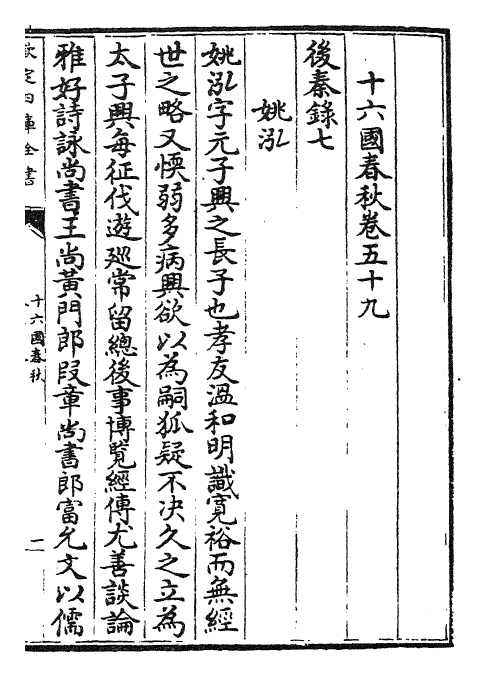 十六國春秋卷五十九
後秦錄七
姚泓
姚泓字元子興之長子也孝友溫和明識寛裕而無經
世之略又愞弱多病興欲以為嗣狐疑不決久之立為
太子興每征伐遊廵常留總後事博覧經傳尤善談論
雅好詩詠尚書王尚黃門郎段章尚書郎富允文以儒
欽定四庫全書
十六國春秋
二